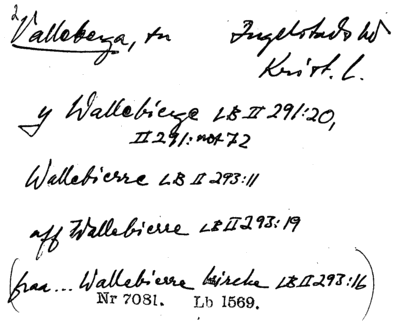 2
Valleberga, sn Ingelstads hd
Krist. l.
y Wallebierge LB II 291:20,
II 291: not 72
Wallebierre LB II 293:11
aff Wallebierre LB II 293:19
(fraa... Wallebierre kircke LB II 293:16)
Nr 7081. Lb 1569.